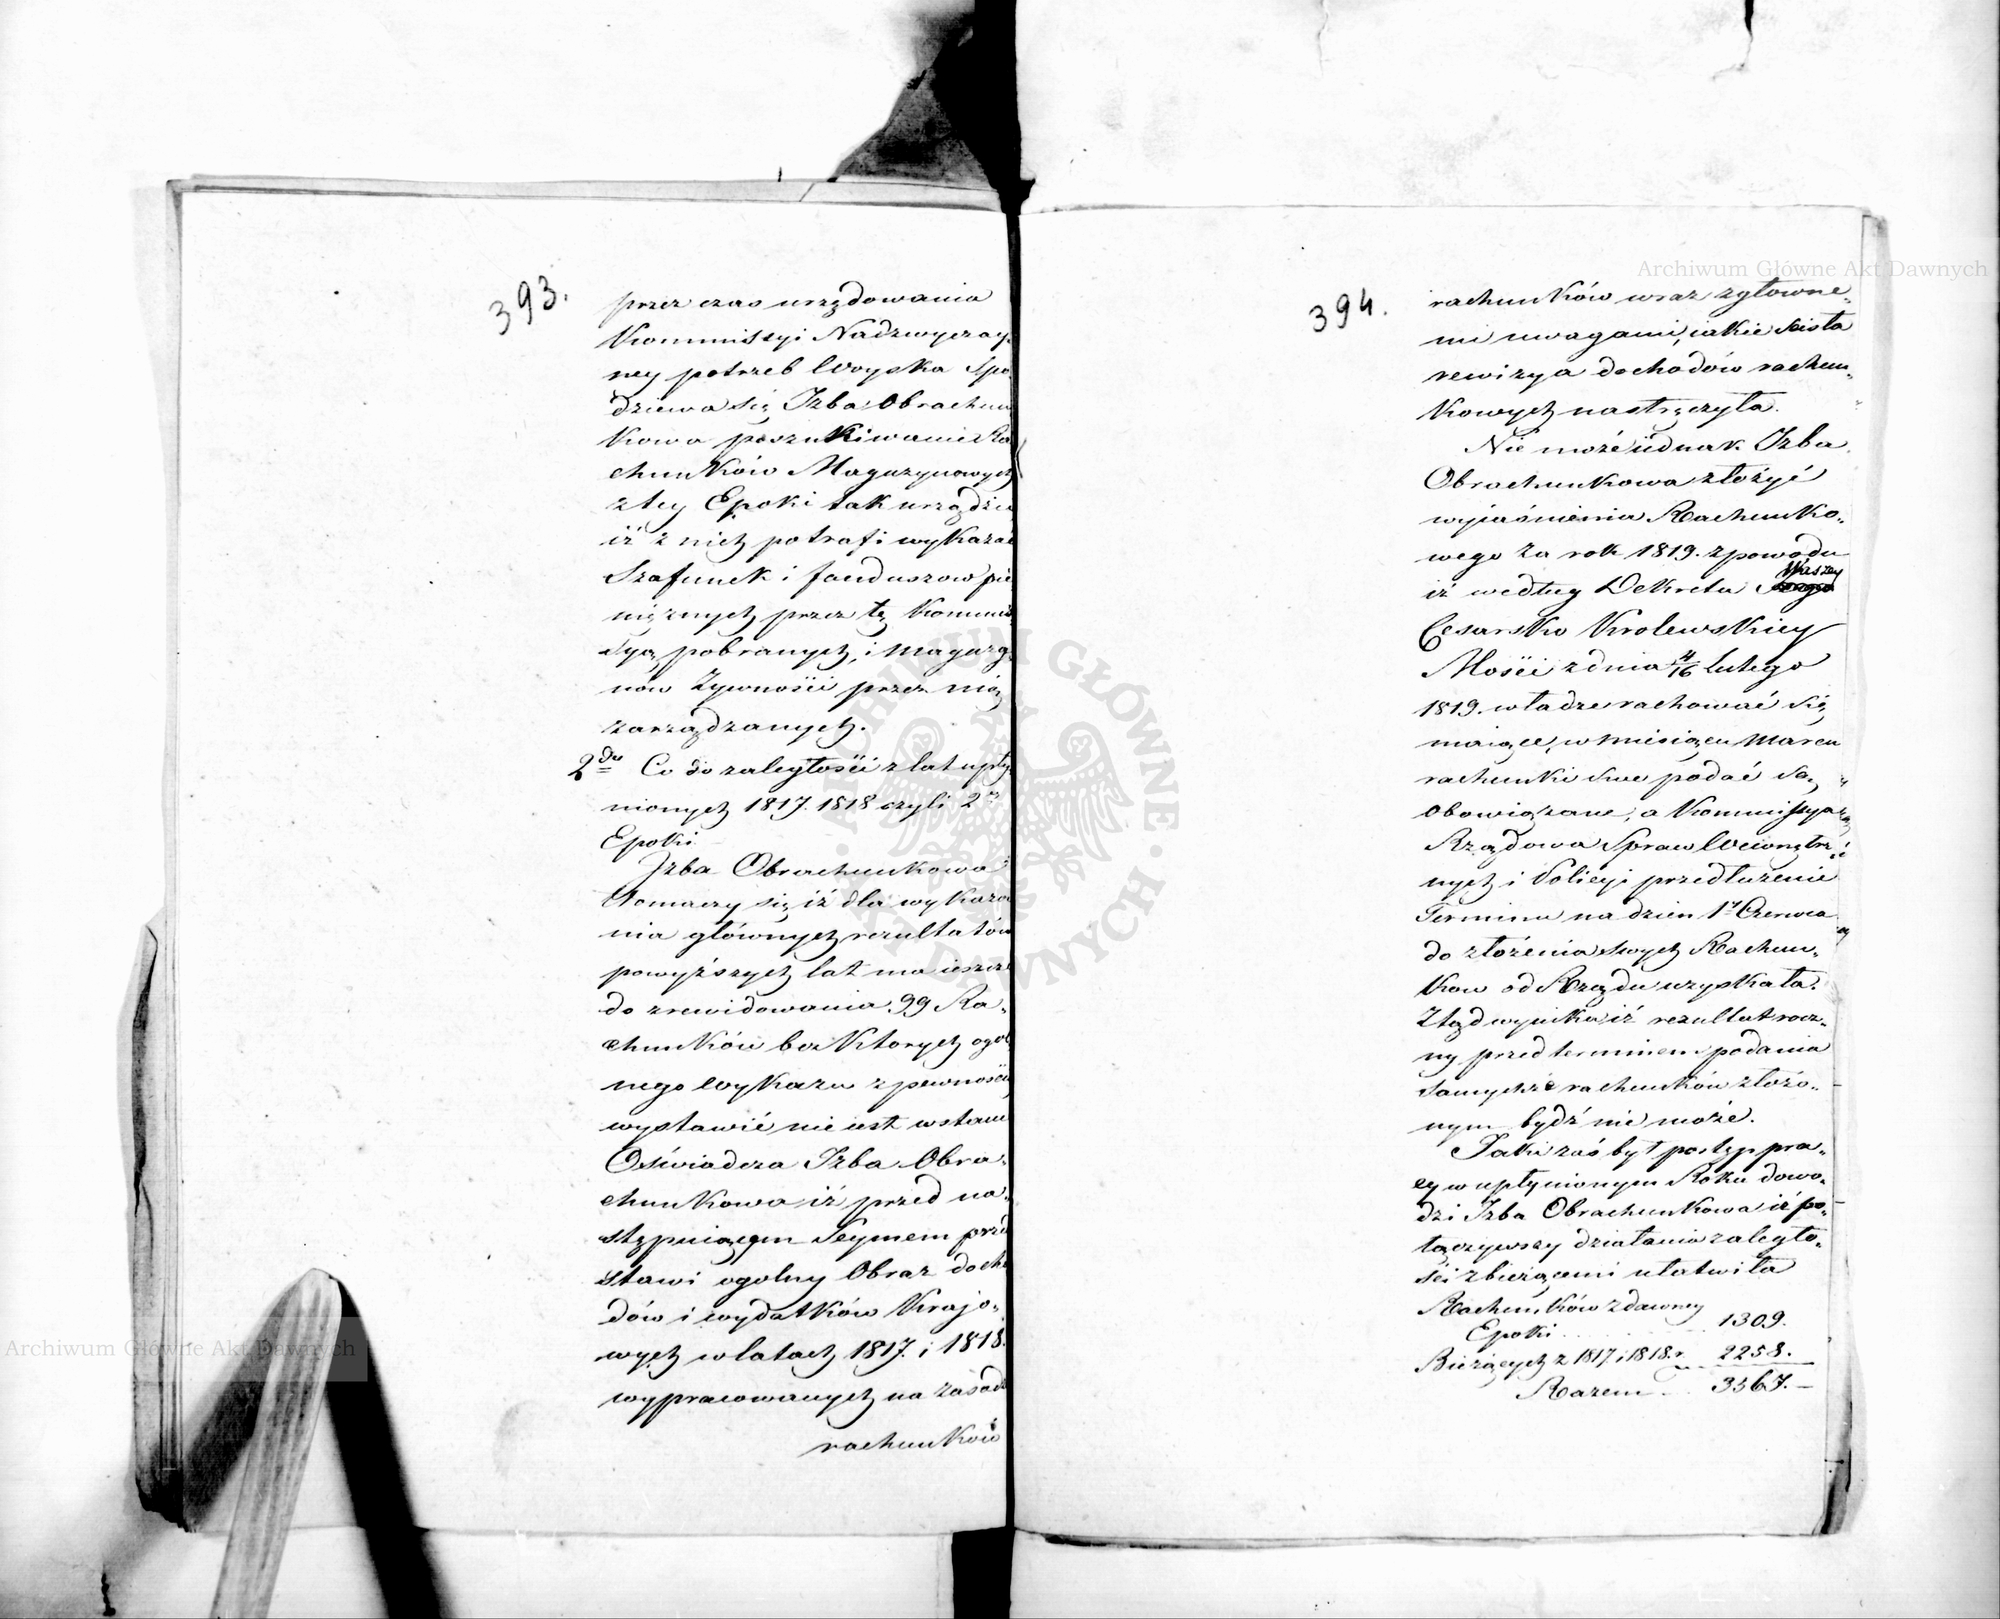 393.
przez czas urzędowania
Kommissyi Nadzwyczay-
ney potrzeb Woyska Spo-
dziewa się Izba Obrachun
kowa poszukiwanie Ra
chunków Magazynowych
z tey Epoki tak urządzić
iż z nich potrafi wykazać
Szafunek i funduszow pie
niężnych przez tę Kommis
syą pobranych, i magazy-
now Żywności przez nią
zarządzanych.
2do Co do zaległości z lat upły-
nionych 1817. 1818 czyli 2iey
Epoki
Izba Obrachunkowa
tłomaczy się iż dla wykaza
nia głównych rezultatów
powyższych lat ma ieszcze
do zrewidowania 99 Ra-
chunków bez ktorych ogol
nego wykazu z pewnością
wystawić nie iest w stanie
Oświadcza Izba Obra-
chunkowa iż przed na-
stępuiącym Seymem przed
stawi ogolny Obraz docho
dów i wydatków Krajo-
wych w latach 1817. i 1818.
wypracowanych na zasadzie
rachunków
394.
rachunków wraz z głowne-
mi uwagami, iakie scisła
rewizya dochodów rachun-
kowych nastręczyła.
Nie może iednak Izba
Obrachunkowa złożyć
wyiaśnienia Rachunko-
wego za rok 1819. z powodu
iż według Dekretu Waszey
Cesarsko Krolewskiey
Mości z dnia 4/16 Lutego
1819. władze rachować się
maiące, w miesiącu Marcu
rachunki swe podać są
obowiązane, a Kommissya
Rządowa Spraw Wewnętrz-
nych i Policyi przedłużenie
Terminu na dzien 1y Czerwca
do złożenia swych Rachun-
kow od Rządu uzyskała.
Ztąd wynika iż rezultat rocz-
ny przed terminem podania
samychże rachunków złożo-
nym bydź nie może.
Jaki zaś był postęp pra-
cy w upłynionym Roku dowo-
dzi Izba Obrachunkowa iż po-
łączywszy działania zaległo-
ści z bieżącemi ułatwiła
Rachunków z dawney
Epoki . . . . . 1309.
Bieżących z 1817 i 1818. r. 2258.
Razem . . 3567. –
Archiwum Główne Akt Dawnych
Archiwum Główne Akt Dawnych
ARCHIWUM GŁÓWNE · AKT DAWNYCH ·